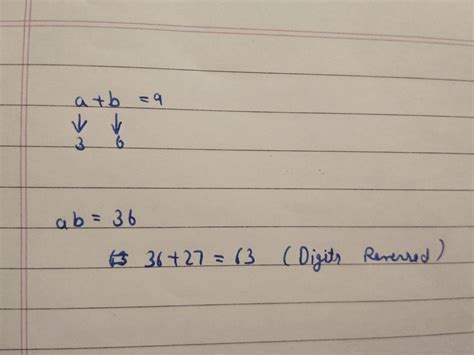 a + b = 9
↓ ↓
3 6
ab = 36
36 + 27 = 63 (Digits Reversed)